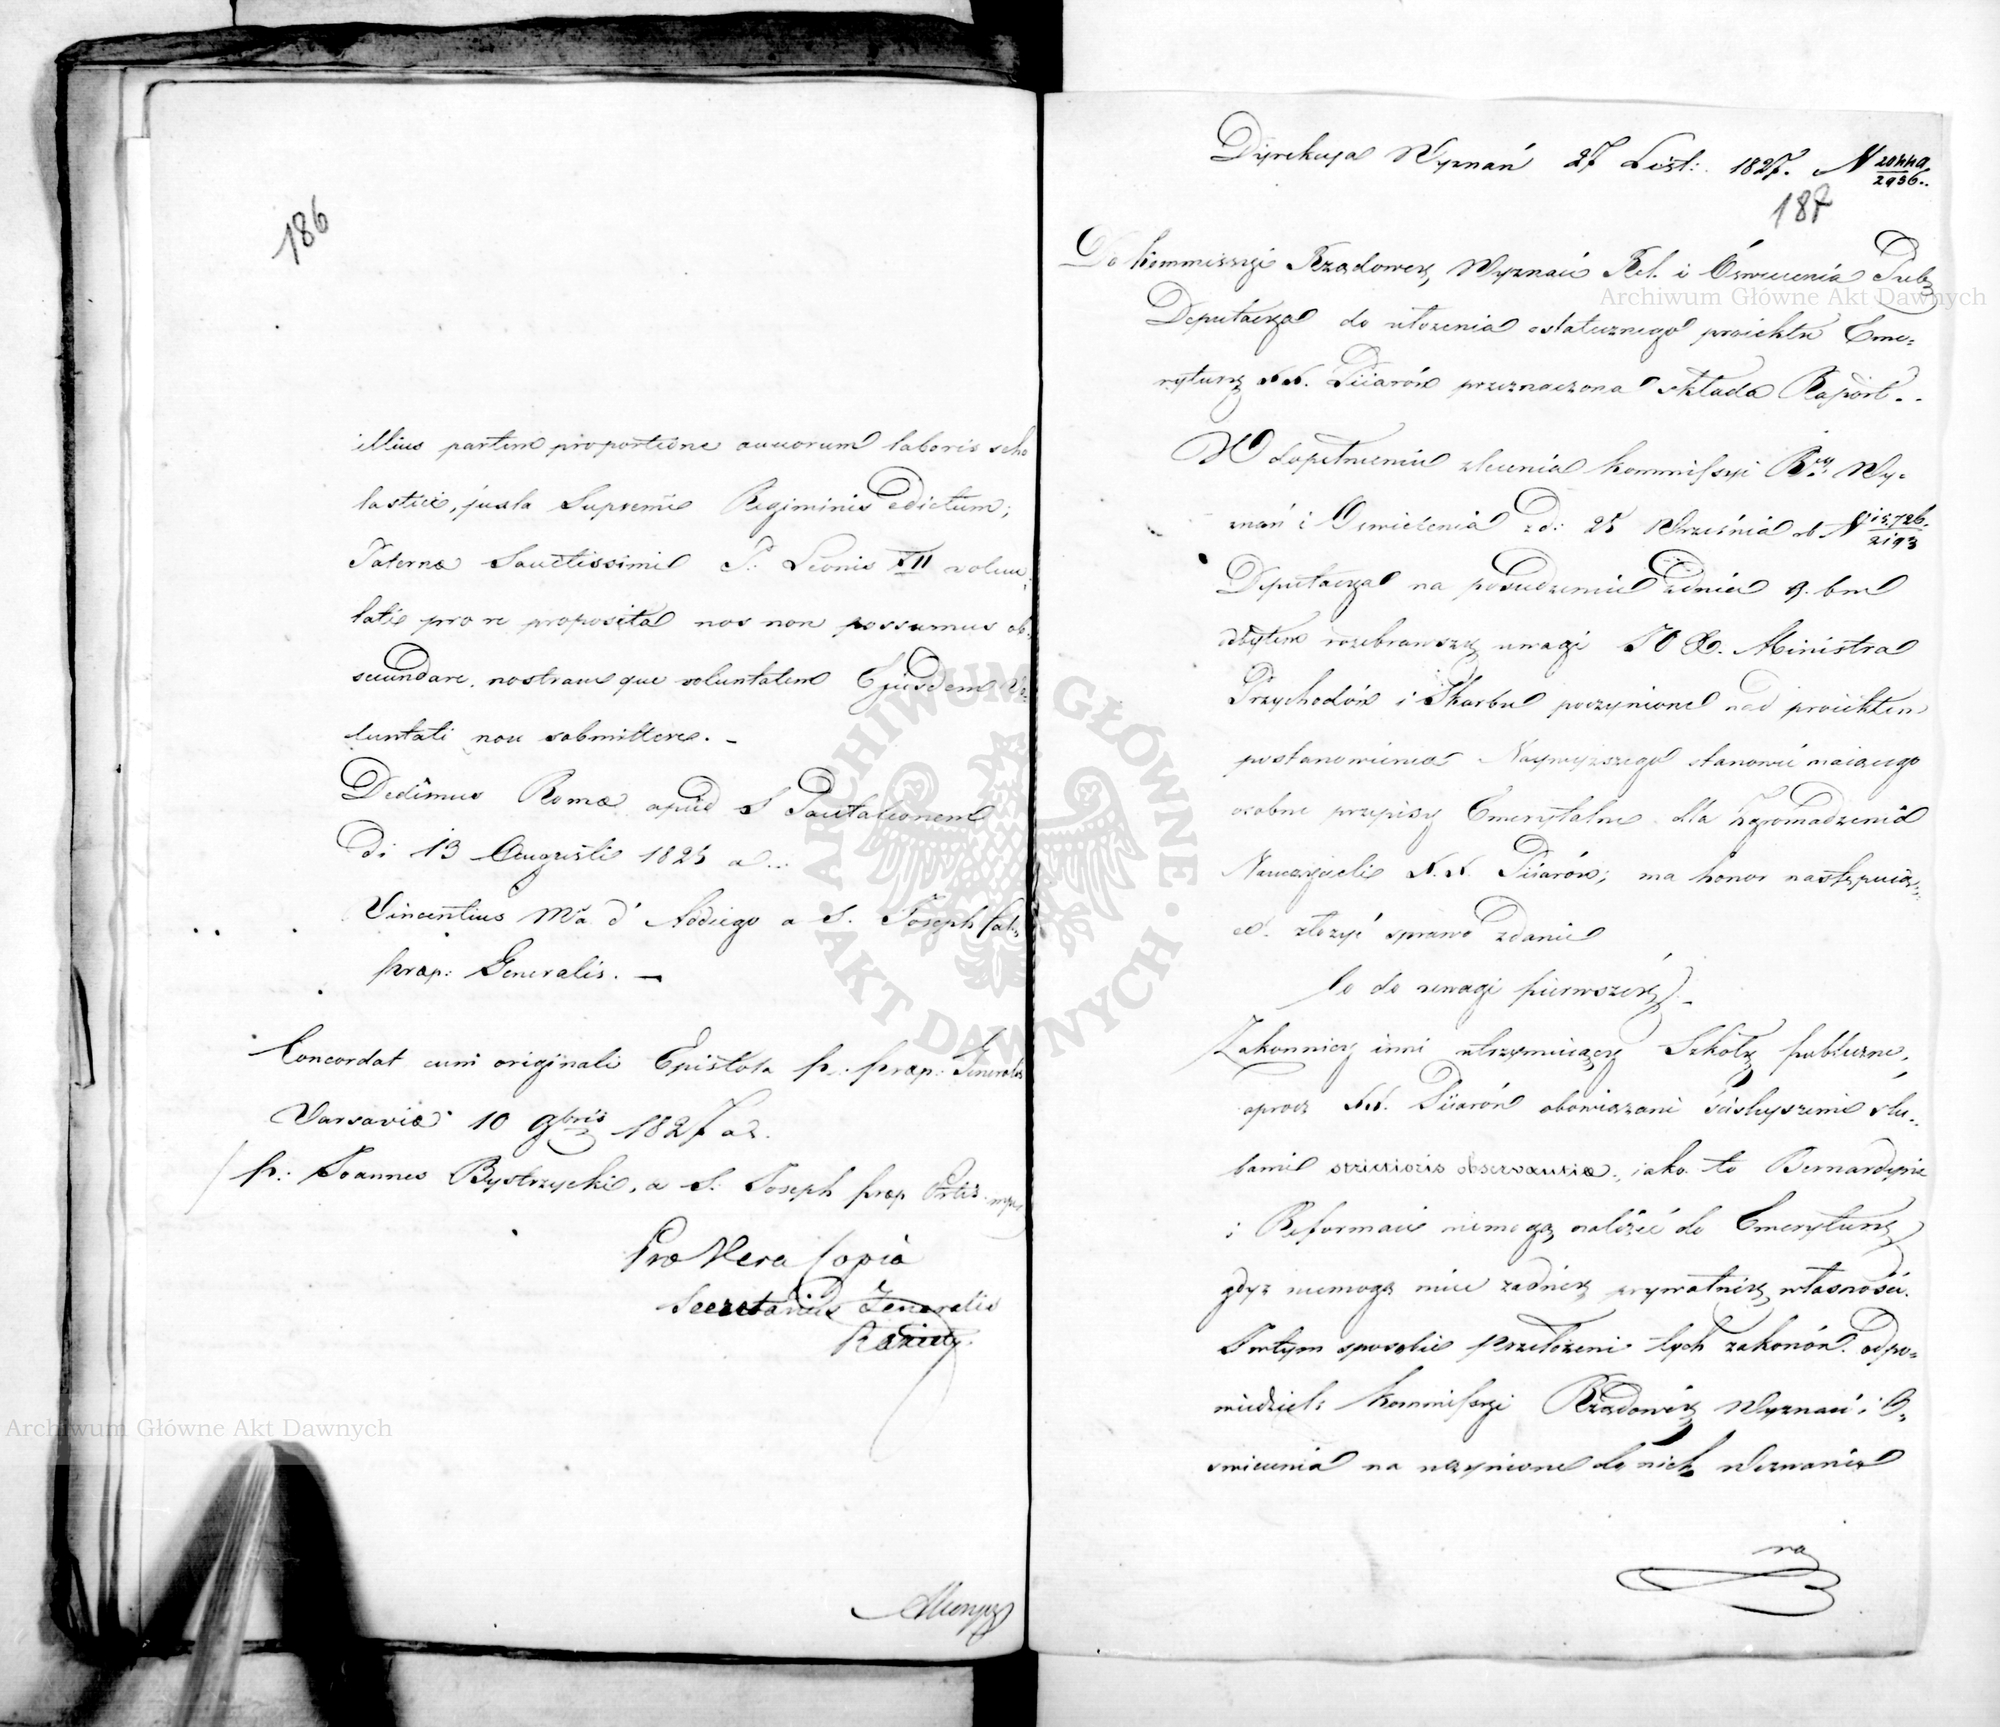 186
illius partem proportione annorum laboris scho
lastici, juxta Supremi Regiminis edictum;
Paternæ Sanctissimi P: Leonis XII volun-
tati pro re proposita nos non possumus ob-
secundare, nostramque voluntatem Ejusdem Vo-
luntati non submittere. –
Dedimus Romæ apud S Pantaleonem
Di 13 Augusti 1825 a...
Vincentius Mª d' Addiego a S. Joseph Cal:
præp: Generalis. —
Concordat cum originali Epistola p: præp: Generalis
Varsaviæ 10 9bris 1827 a.
p: Joannes Bystrzycki, a S: Joseph præp
Pro Vera Copia
Secretarius Generalis
Dyrekcya Wyznań 27 List: 1827. N 20449/2936..
187
Do Kommissyi Rządowey Wyznań Rel. i Oświecenia Pub:
Deputacya do ułożenia ostatecznego proiektu Eme-
rytury XX. Piiarów przeznaczona składa Raport..
W dopełnieniu zlecenia Kommissyi Rey Wy-
znań i Oswiecenia z d: 25 Września b N 15,726/2193
Deputacya na posiedzeniu z dnia 9. bm
odbytem rozebrawszy uwagi JO X. Ministra
Przychodów i Skarbu poczynione nad proiektem
postanowienia Naywyższego stanowić maiącego
osobne przepisy Emerytalne dla Zgromadzenia
Nauczycieli X.X. Piiarów; ma honor następuią-
ce. złożyć sprawozdanie
Co do uwagi pierwszey. –
Zakonnicy inni utrzymuiący Szkoły publiczne,
oprocz XX. Piiarów obowiązani ściśleyszemi ślu-
bami strictioris observantiæ, iako to Bernardyni
i Reformaci niemogą należeć do Emerytury
gdyż niemogą mieć żadney prywatney własności.
W tym sposobie Przełożeni tych zakonów odpo-
wiedzieli Kommissyi Rządowey Wyznań i O-
swiecenia na uczynione do nich wezwanie
na
Archiwum Główne Akt Dawnych
Archiwum Główne Akt Dawnych
ARCHIWUM GŁÓWNE · AKT DAWNYCH ·